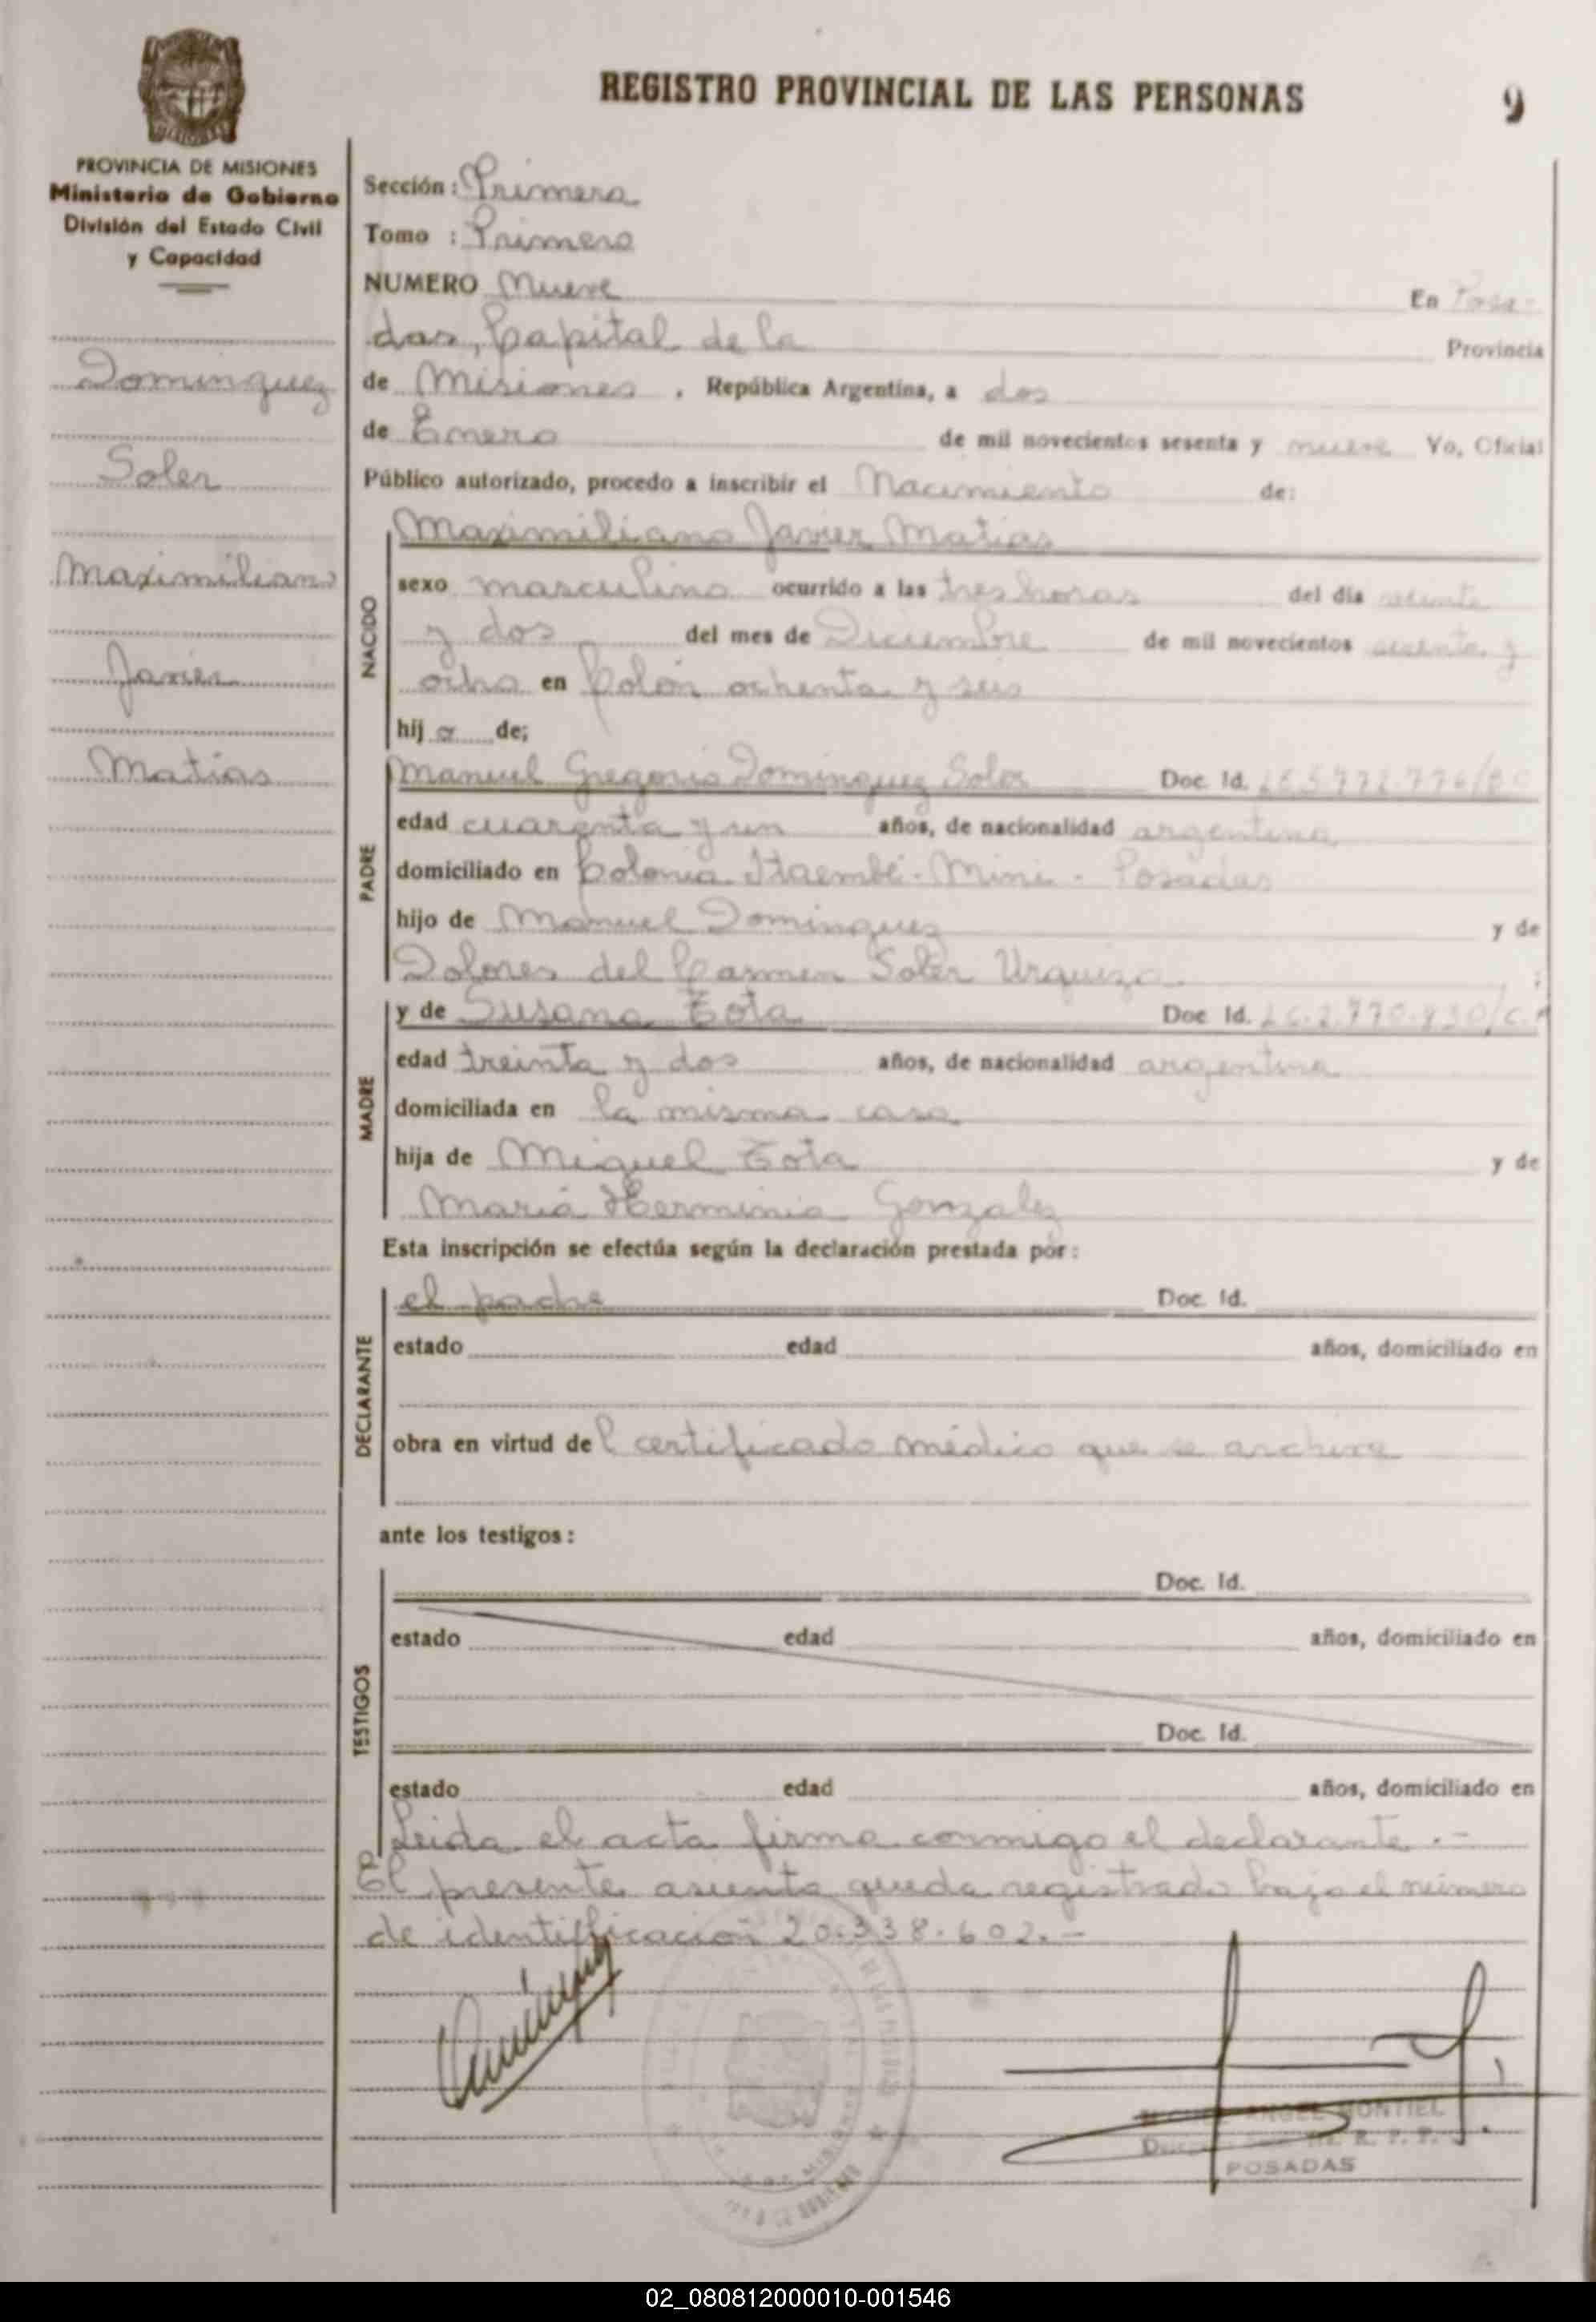 REGISTRO PROVINCIAL DE LAS PERSONAS
9
PROVINCIA DE MISIONES
Ministerio de Gobierno
División del Estado Civil
y Capacidad
Dominguez
Soler
Maximiliano
Javier
Matias
Sección: Primera
Tomo : Primero
NUMERO Nueve En Posa-
das, Capital de la Provincia
de Misiones, República Argentina, a dos
de Enero de mil novecientos sesenta y nueve Yo, Oficial
Público autorizado, procedo a inscribir el Nacimiento de:
NACIDO
Maximiliano Javier Matias
sexo masculino ocurrido a las tres horas del dia veinte
y dos del mes de Diciembre de mil novecientos sesenta y
ocho en Colón ochenta y seis
hij o de;
PADRE
Manuel Gregorio Dominguez Soler Doc. Id.
edad cuarenta y un años, de nacionalidad argentina
domiciliado en Colonia Itaembé-Mini - Posadas
hijo de Manuel Dominguez y de
Dolores del Carmen Soler Urquiza
MADRE
y de Susana Tota Doc. Id.
edad treinta y dos años, de nacionalidad argentina
domiciliada en la misma casa
hija de Miguel Tota y de
María Herminia Gonzalez
Esta inscripción se efectúa según la declaración prestada por:
DECLARANTE
el padre Doc. Id.
estado edad años, domiciliado en
obra en virtud del certificado médico que se archiva
ante los testigos:
TESTIGOS
Doc. Id.
estado edad años, domiciliado en
Doc. Id.
estado edad años, domiciliado en
Leida el acta firma conmigo el declarante.-
El presente asiento queda registrado bajo el número
de identificación 20.338.602.-
ANGEL MONTIEL
R. P. P.
POSADAS
02_080812000010-001546